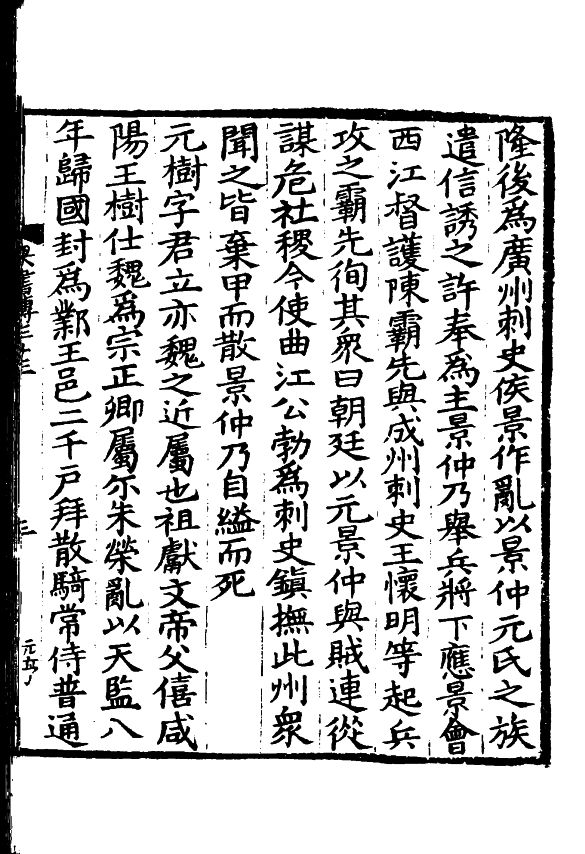 隆後爲廣州刺史侯景作亂以景仲元氏之族
遣信誘之許奉爲主景仲乃舉兵將下應景會
西江督護陳霸先與成州刺史王懷明等起兵
攻之霸先徇其衆曰朝廷以元景仲與賊連從
謀危社稷今使曲江公勃爲刺史鎭撫此州衆
聞之皆棄甲而散景仲乃自縊而死
元樹字君立亦魏之近屬也祖獻文帝父僖咸
陽王樹仕魏爲宗正卿屬尒朱榮亂以天監八
年歸國封爲鄴王邑二千戸拜散騎常侍普通